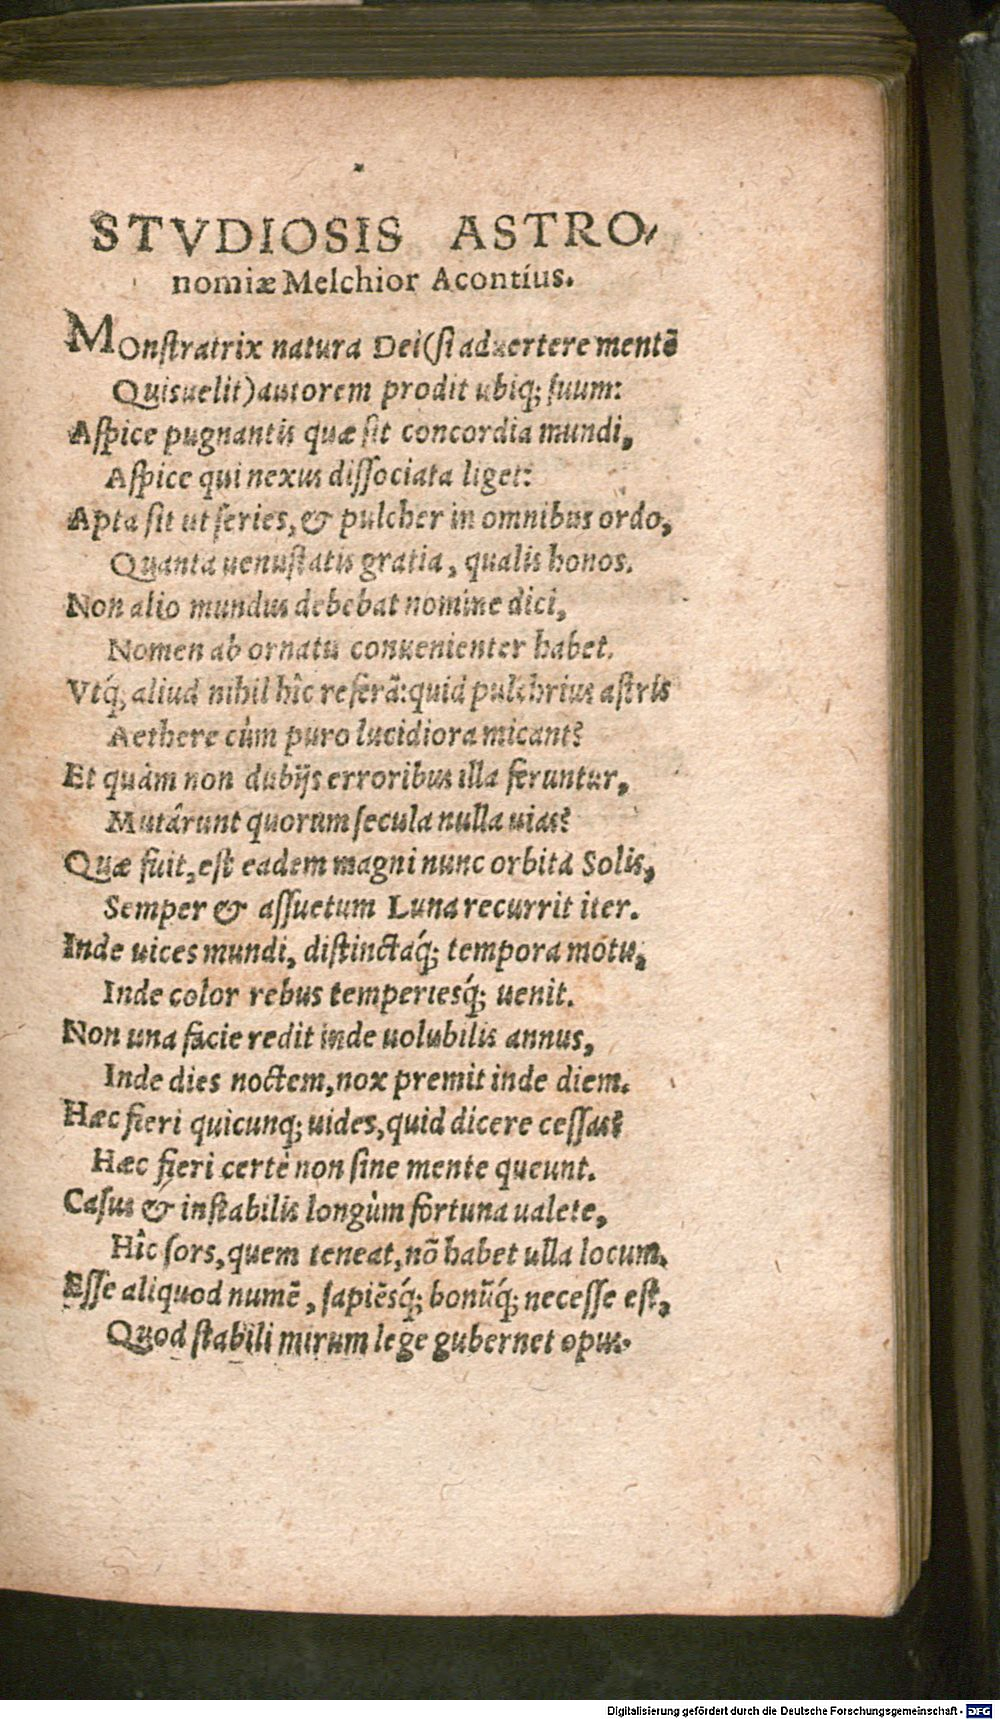 STVDIOSIS ASTRO-
nomiæ Melchior Acontius.
MOnſtratrix natura Dei(ſi aduertere mentē
Quisuelit)autorem prodit ubiq; ſuum:
Aſpice pugnantis quæ ſit concordia mundi,
Aſpice qui nexus diſſociata liget:
Apta ſit ut ſeries, & pulcher in omnibus ordo,
Quanta uenuſtatis gratia, qualis honos.
Non alio mundus debebat nomine dici,
Nomen ab ornatu conuenienter habet.
Vtq́; aliud nihil hîc referā: quid pulchrius aſtris
Aethere cùm puro lucidiora micant?
Et quàm non dubijs erroribus illa feruntur,
Mutârunt quorum ſecula nulla uias?
Quæ fuit, eſt eadem magni nunc orbita Solis,
Semper & aſſuetum Luna recurrit iter.
Inde uices mundi, diſtinctaq́; tempora motu,
Inde color rebus temperiesq́; uenit.
Non una facie redit inde uolubilis annus,
Inde dies noctem, nox premit inde diem.
Hæc fieri quicunq; uides, quid dicere ceſſas?
Hæc fieri certè non ſine mente queunt.
Caſus & inſtabilis longùm fortuna ualete,
Hîc ſors, quem teneat, nō habet ulla locum.
Eſſe aliquod numē, ſapiēsq́; bonūq́; neceſſe eſt,
Quod ſtabili mirum lege gubernet opus.
Digitalisierung gefördert durch die Deutsche Forschungsgemeinschaft - DFG